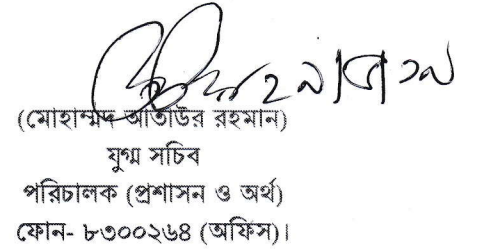 (মোহাম্মদ আতাউর রহমান)
যুগ্ম সচিব
পরিচালক (প্রশাসন ও অর্থ)
ফোন- ৮৩০০২৬৪ (অফিস)।